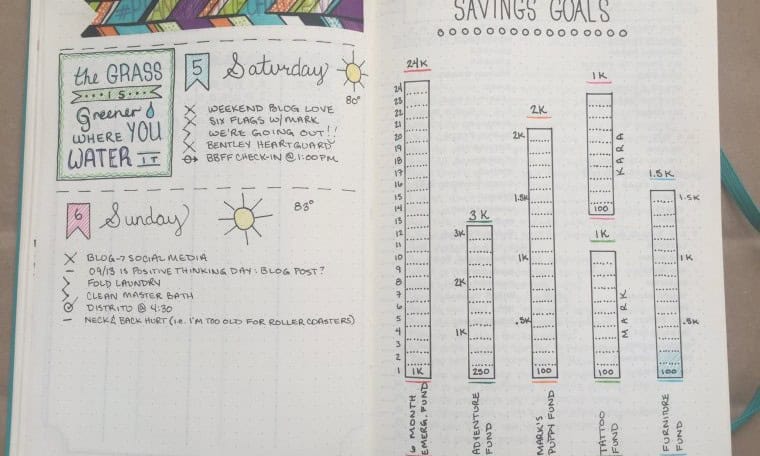 the GRASS
IS
Greener
WHERE YOU
WATER IT
5 Saturday
80°
X WEEKEND BLOG LOVE
X SIX FLAGS W/MARK
> WE'RE GOING OUT!!
X BENTLEY HEARTGUARD
BBFF CHECK-IN @ 1:00PM
6 Sunday
83°
X BLOG → SOCIAL MEDIA
– 09/13 IS POSITIVE THINKING DAY: BLOG POST?
> FOLD LAUNDRY
> CLEAN MASTER BATH
DISTRITO @ 4:30
– NECK & BACK HURT (i.e. I'M TOO OLD FOR ROLLER COASTERS)
SAVINGS GOALS
24K
24
23
22
21
20
19
18
17
16
15
14
13
12
11
10
9
8
7
6
5
4
3
2
1
1K
6 MONTH
EMERG. FUND
3K
3K
2K
1K
250
ADVENTURE
FUND
2K
2K
1.5K
1K
.5K
100
MARK'S
PUPPY FUND
1K
KARA
100
1K
MARK
100
TATTOO
FUND
1.5K
1.5K
1K
.5K
100
FURNITURE
FUND